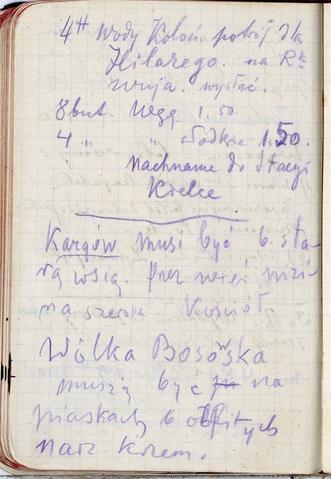 4 tt Wody Koloń. potrój dla
Hilarego. na Rk
wuja. wysłać.
8 but. Węgg 1.50
4 " słodkie 1.50.
Nachname do Stacyi
Kielce
Kargów musi być b. sta
rą wsią. Przez niziną
na szeroka - Kościół
Wólka Bosowska
muszą być na
piaskach b obfitych
nad